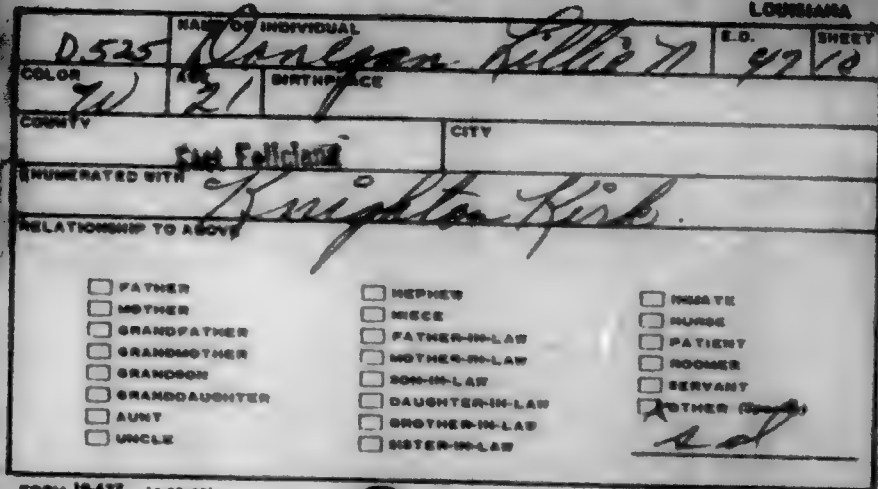 LOUISIANA
D.525 NAME OF INDIVIDUAL Donegan Lillie N E.D. 47 SHEET 10
COLOR W AGE 21 BIRTHPLACE
COUNTY East Feliciana CITY
ENUMERATED WITH Knighton Kirk.
RELATIONSHIP TO ABOVE
FATHER
MOTHER
GRANDFATHER
GRANDMOTHER
GRANDSON
GRANDDAUGHTER
AUNT
UNCLE
NEPHEW
NIECE
FATHER-IN-LAW
MOTHER-IN-LAW
SON-IN-LAW
DAUGHTER-IN-LAW
BROTHER-IN-LAW
SISTER-IN-LAW
INMATE
NURSE
PATIENT
ROOMER
SERVANT
X OTHER (Specify)
sd